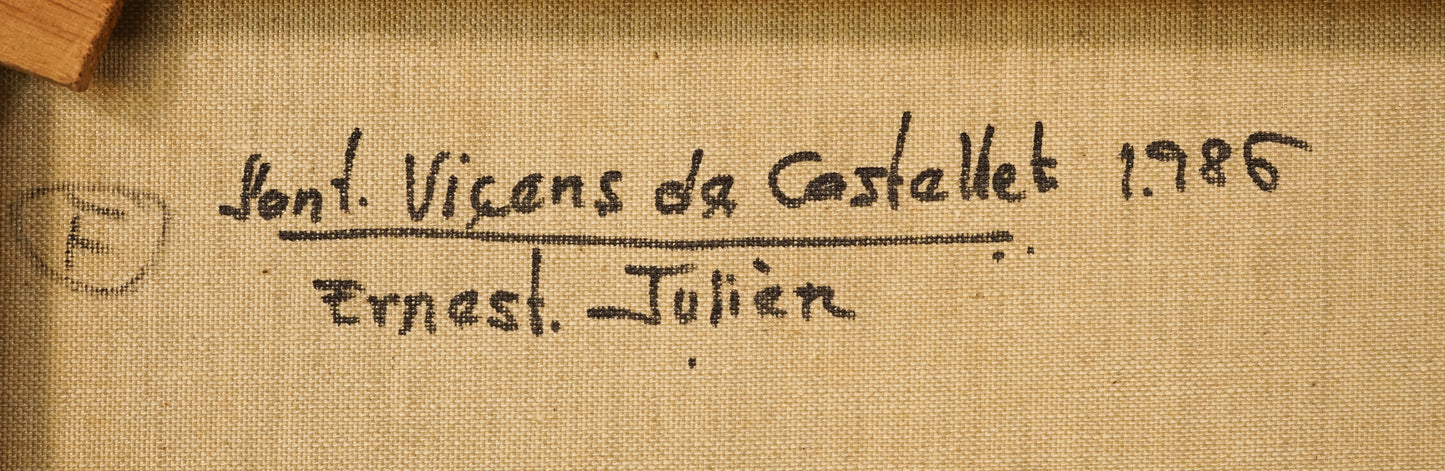 Sant. Viçens de Castellet 1.986
Ernest. Julièn
F